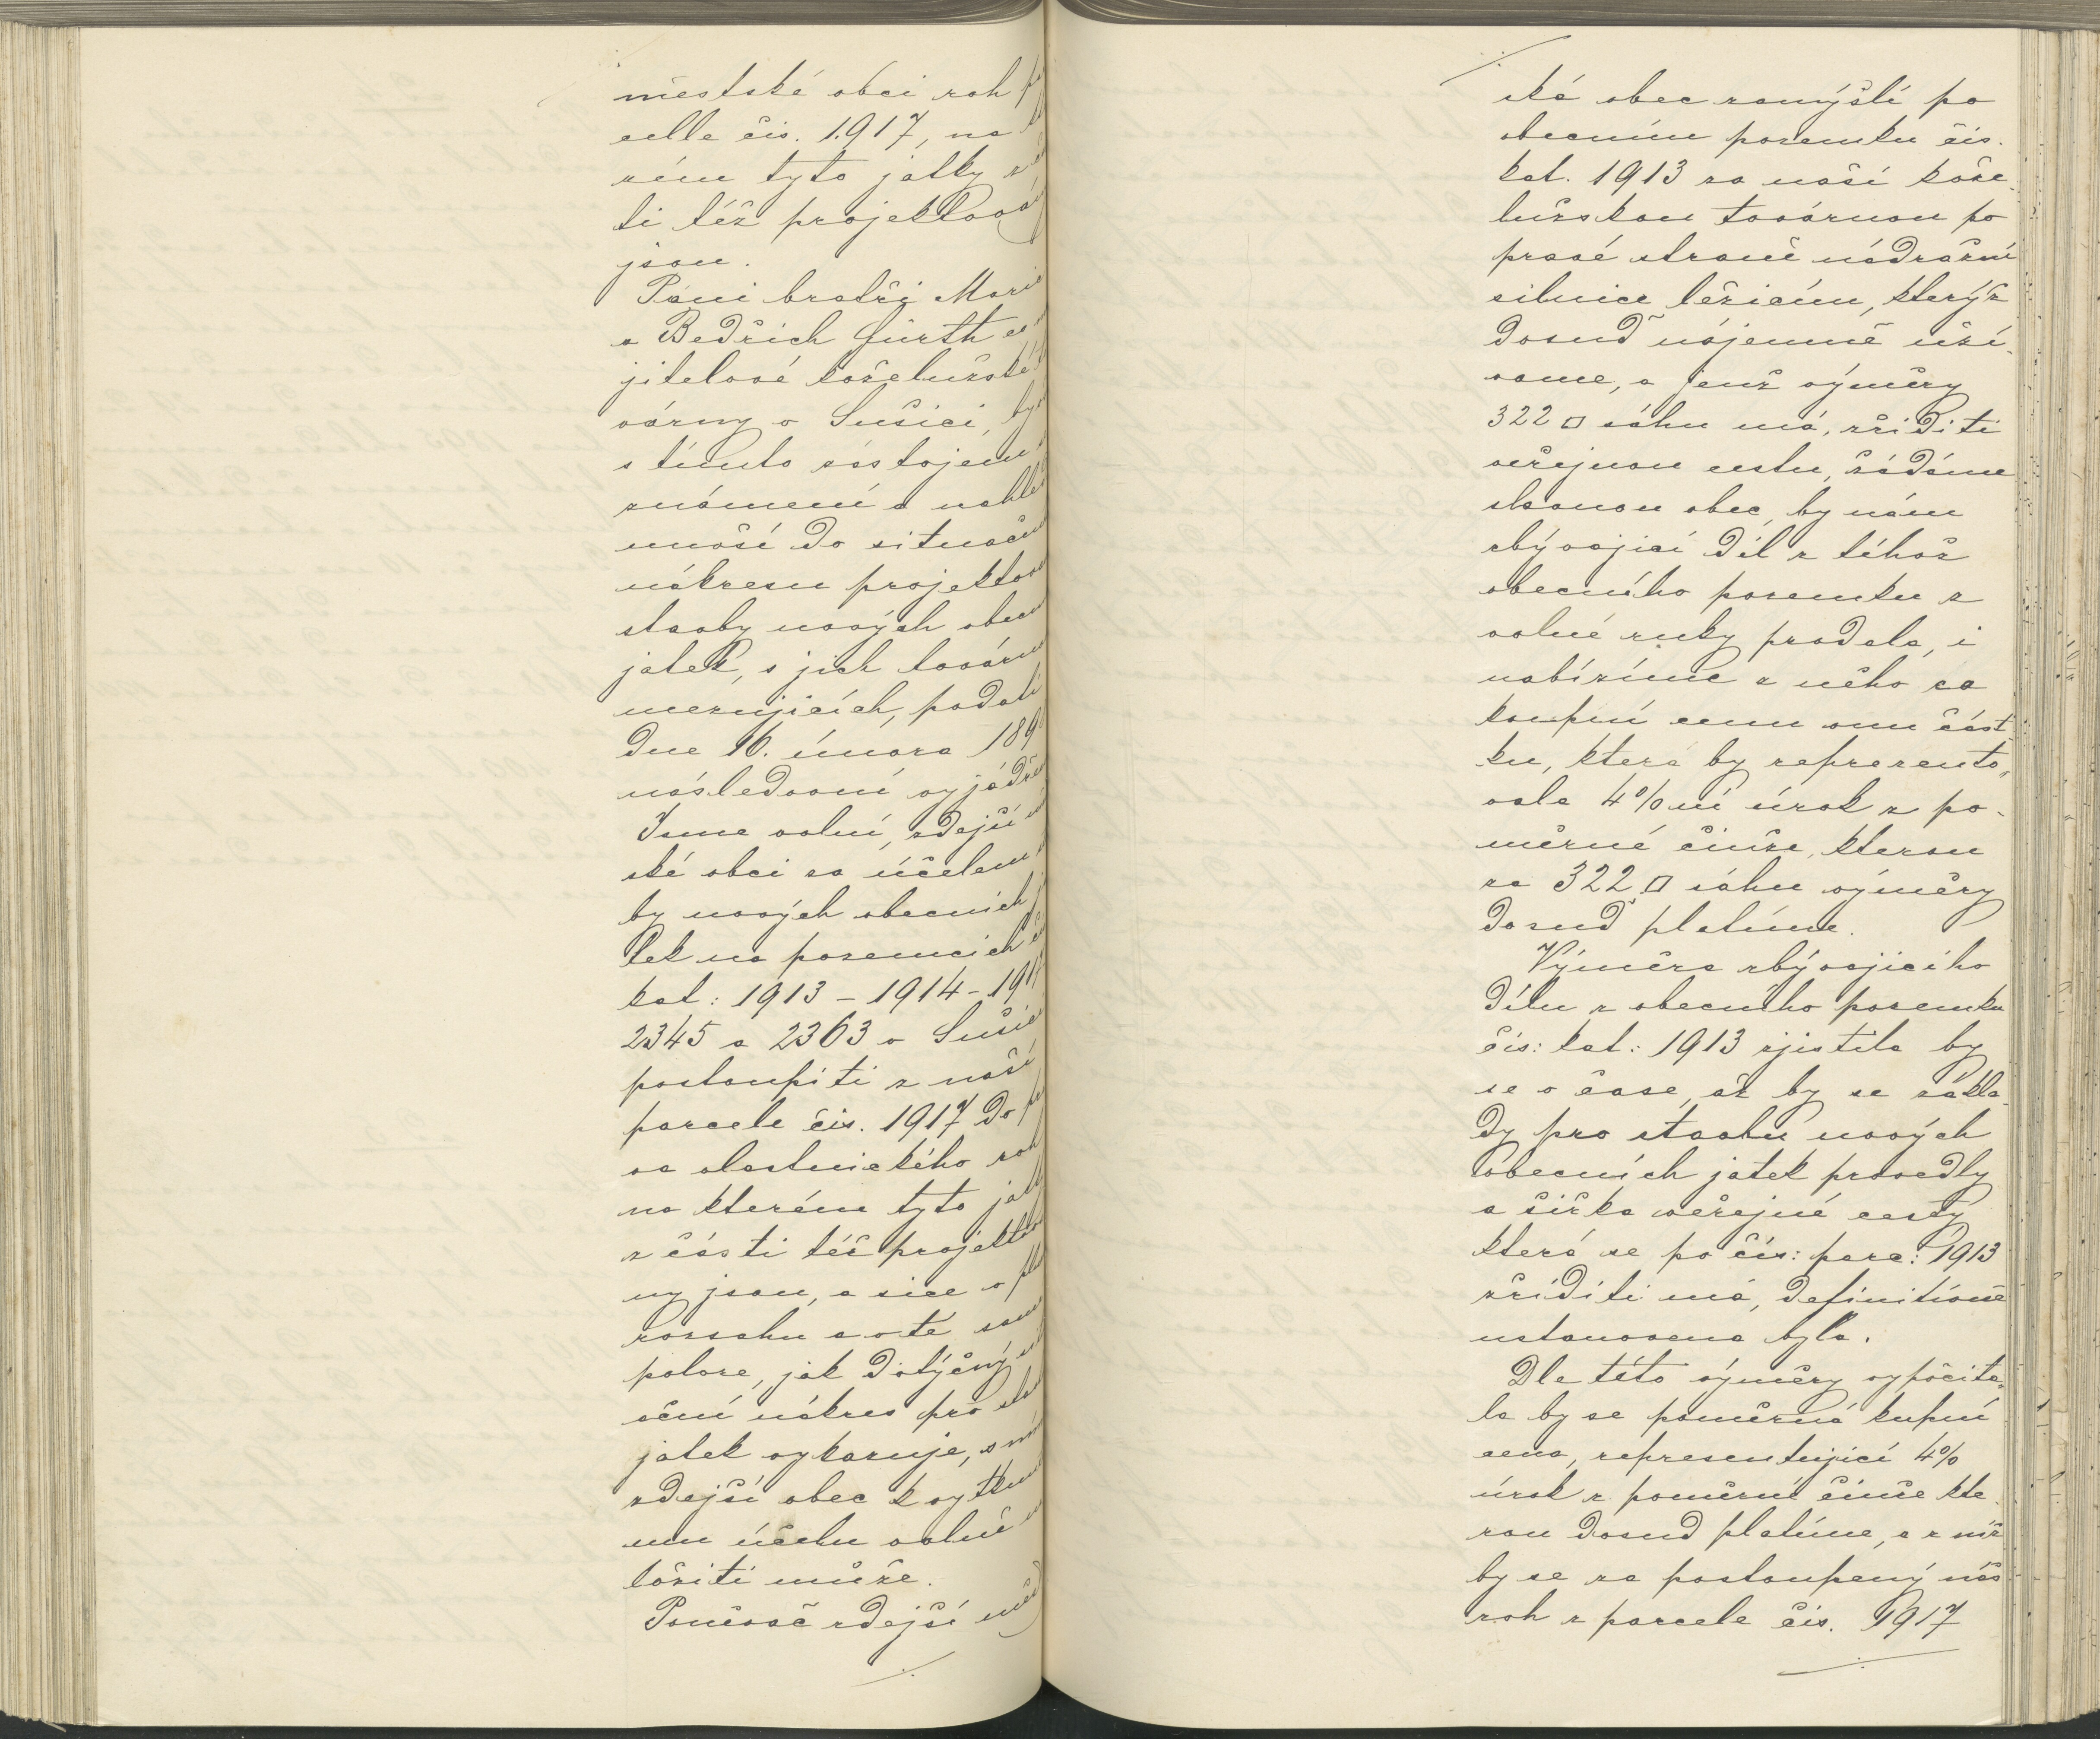 městské obci roh
celle čis. 1917, na
rém tyto jatky
ti též projektová
jsou.
Páni bratři Moric
a Bedřich Fürth
jitelové koželužské
várny v Sušici,
s tímto
známení a nahlé
mnoší do situač
nákresu projektova
stavby nových obec
jatek, s jich továrn
mezujících, podali
dne 16. února 189
následovní vyjádře
Jsme volni, zdejší
ské obci za účelem
by nových obecních
tek na pozemcích
kat: 1913 – 1914 – 191
2345 a 2363 v Sušic
postoupiti z naší
parcele čis. 1917 do
va vlastnického roh
na kterém tyto jatk
z části též projekto
ny jsou, a sice v
rozsahu a v té sam
poloze, jak dotýčný
ační nákres pro sta
jatek vykazuje, a
zdejší obec k vytknu
mu účelu volně
ložiti může.
Poněvač zdejší měst
./.
./.
ská obec zamýšlí po
obecním pozemku čis.
kat. 1913 za naší kože-
lužskou továrnou po
pravé straně nádražní
silnice ležícím, kterýž
dosud nájemně uží-
váme, a jenž výměry
322 □ sáhu má, zříditi
veřejnou cestu, žádáme
slavnou obec, by nám
zbývající díl z téhož
obecního pozemku z
volné ruky prodala, i
nabízíme z něho co
koupní cenu onu část-
ku, která by reprezento-
vala 4%ní úrok z po-
měrné činže, kterou
za 322 □ sáhu výměry
dosud platíme.
Výměra zbývajícího
dílu z obecního pozemku
čis: kat: 1913 zjistila by
se v čase, až by se zákla-
dy pro stavbu nových
obecních jatek provedly
a šířka veřejné cesty
která se po čís: parc: 1913
zříditi má, definitivně
ustanovena byla.
Dle této výměry vypočíta-
la by se poměrná kupní
cena, representující 4%
úrok z poměrné činže kte-
rou dosud platíme, a z níž
by se za postoupený náš
roh z parcele čis. 1917
./.